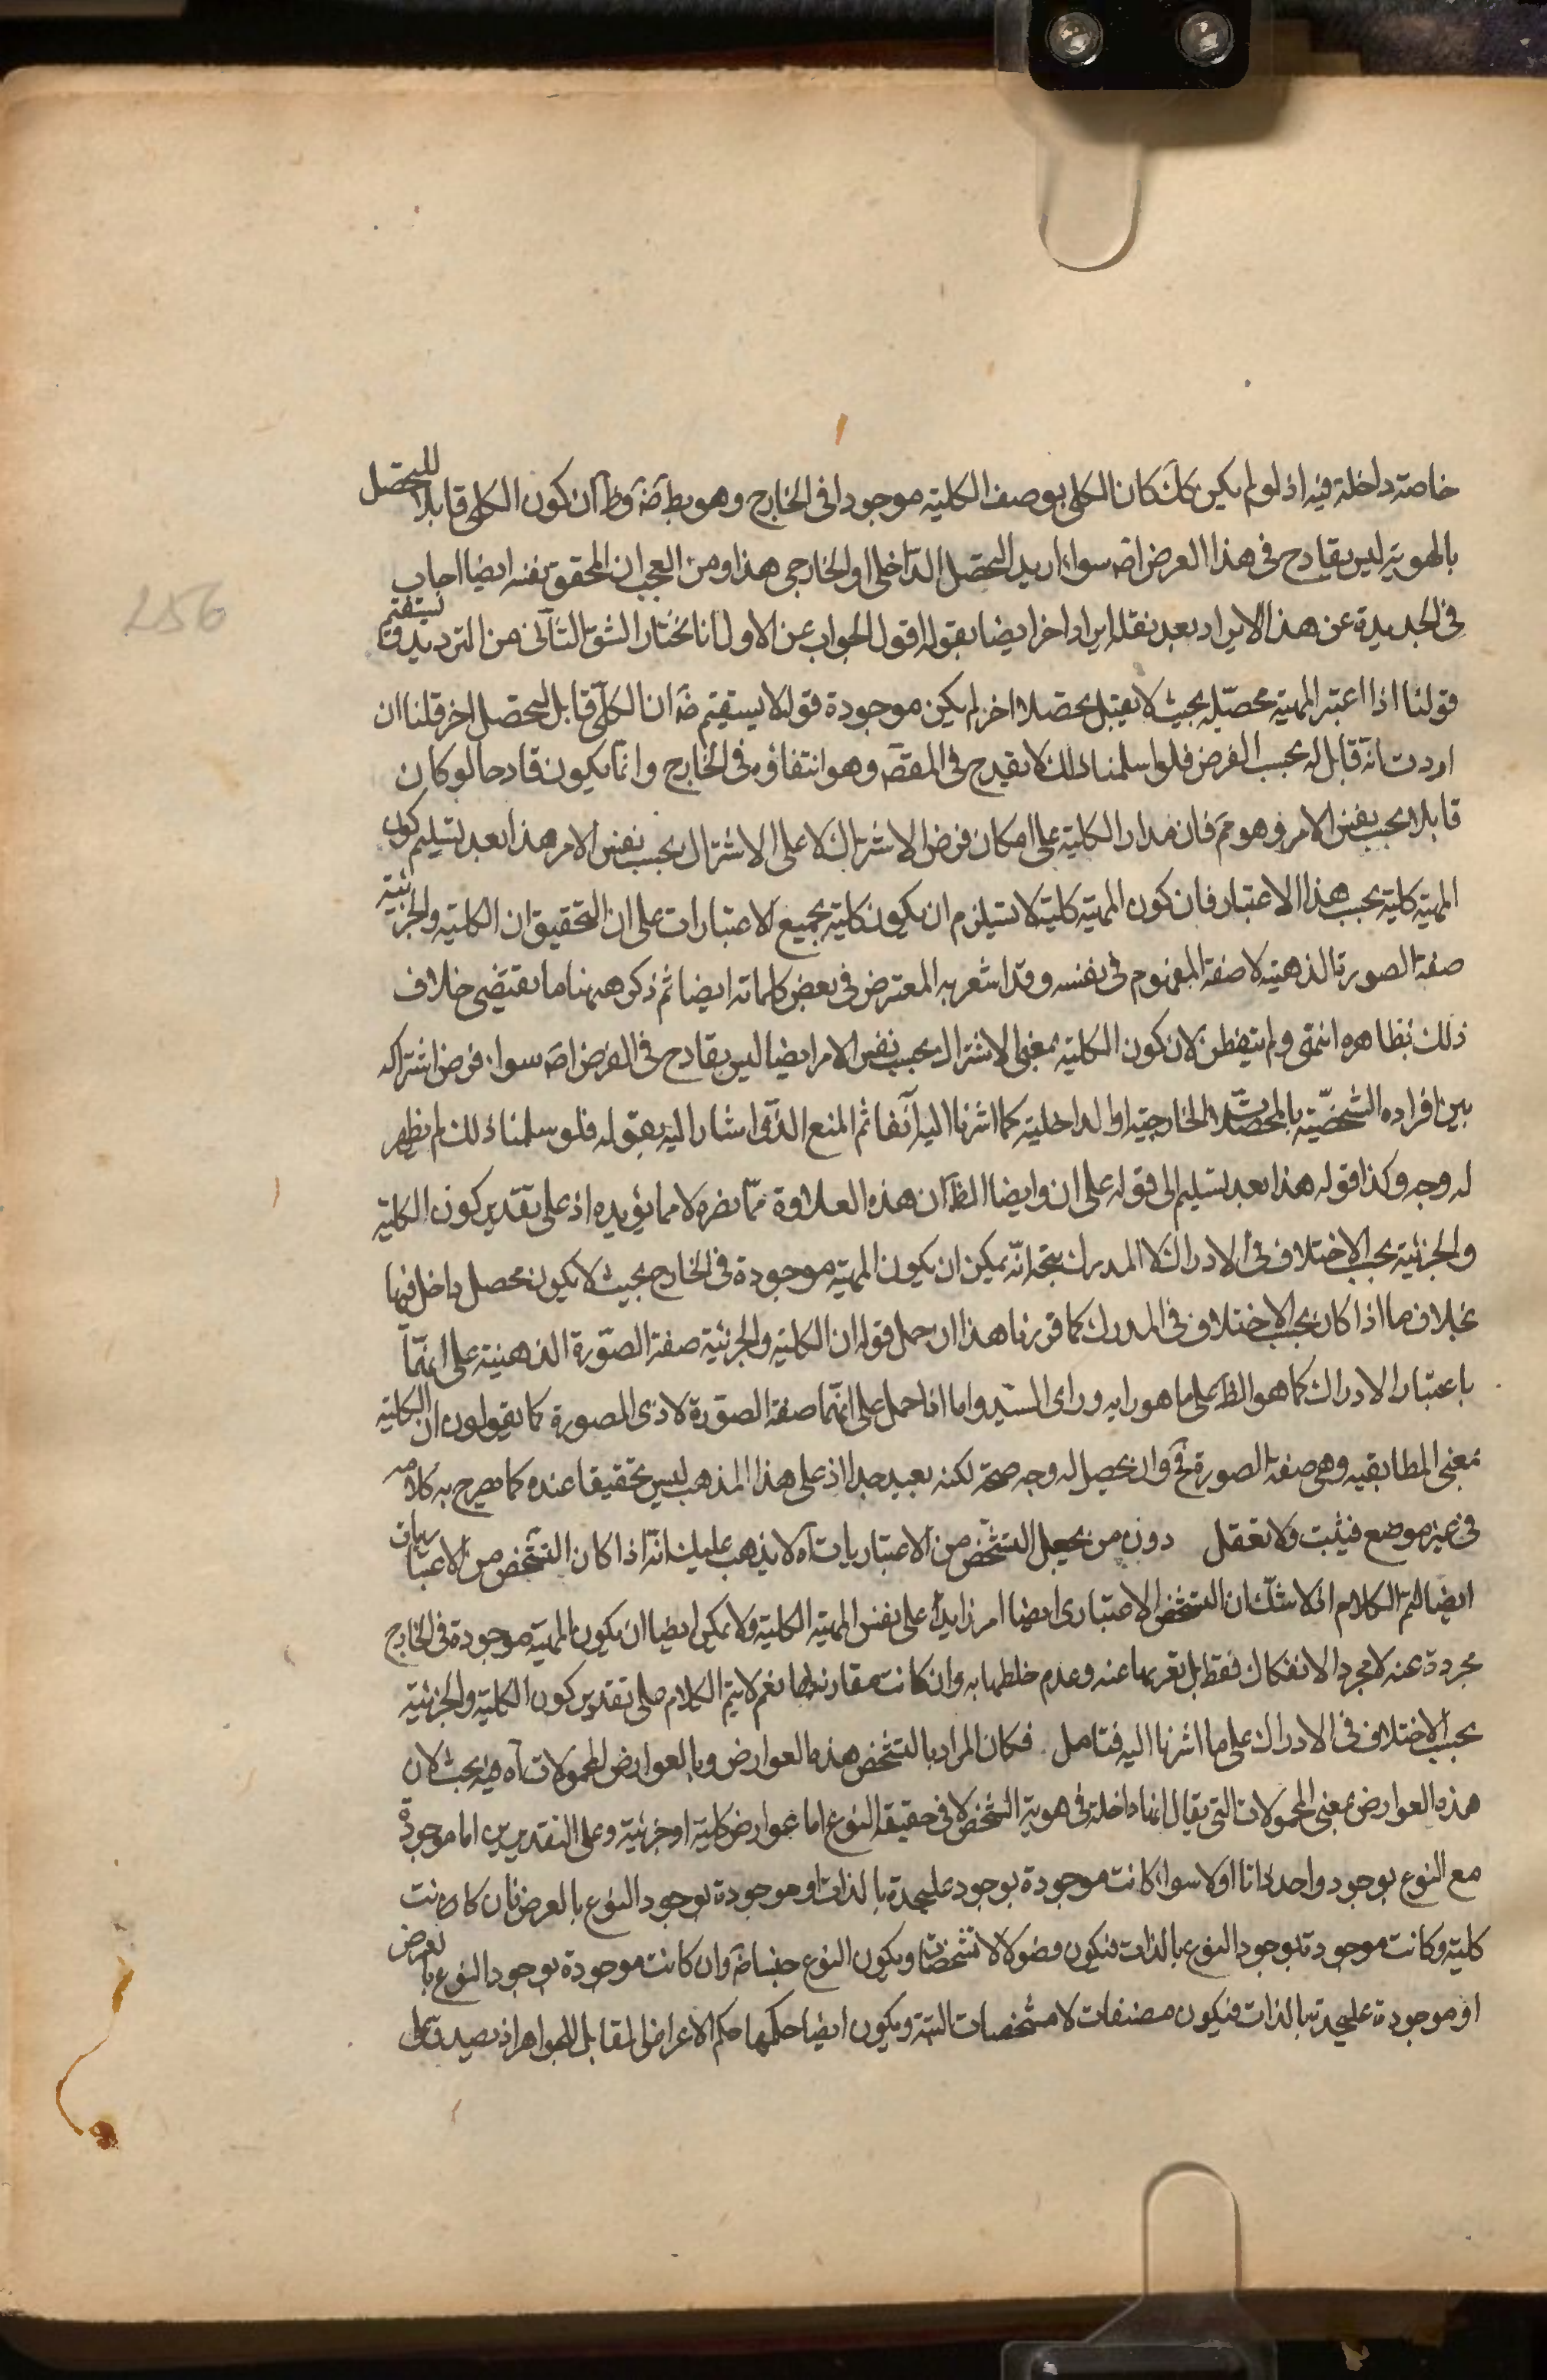 خاصة داخلة فيه اذ لو لم يكن كك كان الكلى بوصف الكلية موجودا فى الخارج وهو بط ضة وظ ان كون الكلى قابلا للتحصل
بالهوية ليس بقادح فى هذا الغرض اصه سواء اريد التحصل الداخلى او الخارجى هذا ومن العجب ان المحقق نفسه ايضا اجاب
فى الجديدة عن هذا الايراد بعد نقله ايرادا اخر ايضا بقوله اقول الجواب عن الاول انا نختار الشق الثانى من الترديد فيستقيم
قولنا اذا اعتبر المهية محصلة بحيث لا يقبل تحصلا اخر لم يكن موجودة قوله لا يستقيم ضة ان الكلى قابل لتحصل اخر قلنا ان
اردت انه قابل له بحسب الفرض فلو سلمنا ذلك لا يقدح فى المقصد وهو انتفاؤه فى الخارج وانما يكون قادحا لو كان
قابلا بحسب نفس الامر وهو مم فان مدار الكلية على امكان فرض الاشتراك لا على الاشتراك بحسب نفس الامر هذا بعد تسليم كون
المهية كلية بحسب هذا الاعتبار فان كون المهية كلية لا يستلزم ان يكون كلية بجميع الاعتبارات على ان التحقيق ان الكلية والجزئية
صفة الصورة الذهنية لا صفة المفهوم فى نفسه وقد اشعر به المعترض فى بعض كلماته ايضا ثم ذكر ههنا ما يقتضى خلاف
ذلك بظاهره انتهى ولم يتفطن لان كون الكلية بمعنى الاشتراك بحسب نفس الامر ايضا ليس بقادح فى الغرض اصه سواء فرض اشتراكه
بين افراده الشخصية بالمحصلات الخارجية او الداخلية كما اشرنا اليه آنفا ثم المنع الذى اشار اليه بقوله فلو سلمنا ذلك لم يظهر
له وجه وكذا قوله هذا بعد تسليم الى قوله على ان وايضا الظ ان هذه العلاوة مما يضره لا مما يؤيده اذ على تقدير كون الكلية
والجزئية بحسب الاختلاف فى الادراك لا المدرك يتجه انه يمكن ان يكون المهية موجودة فى الخارج بحيث لا يكون محصل داخل فيها
بخلاف ما اذا كان بحسب الاختلاف فى المدرك كما قررنا هذا ان حمل قوله ان الكلية والجزئية صفة الصورة الذهنية على انهما
باعتبار الادراك كما هو الظ على ما هو رايه وراى السيد واما اذا حمل على انهما صفة الصورة لا ذى الصورة كما يقولون ان الكلية
بمعنى المطابقيه وهى صفة الصورة فح وان يحصل له وجه صحة لكنه بعيد جدا اذ على هذا المذهب ليس تحقيقا عنده كما يصرح به كلامه
فى غير موضع فيثبت ولا تغفل دون من يجعل التشخص من الاعتباريات آه لا يذهب عليك انه اذا كان التشخص من الاعتباريات
ايضا لتم الكلام اذ لا شك ان التشخص الاعتبارى ايضا امر زايد على نفس المهية الكلية ولا يمكن ايضا ان يكون المهية موجودة فى الخارج
مجردة عنه لا مجرد الانفكاك فقط بل تعريها عنه وعدم خلطها به وان كانت مقارنة لها نعم لا يتم الكلام على تقدير كون الكلية والجزئية
بحسب الاختلاف فى الادراك على ما اشرنا اليه فتامل فكان المراد بالتشخص هذه العوارض وبالعوارض المحمولات آه فيه بحث لان
هذه العوارض بمعنى المحمولات التى يقال انها داخلة فى هوية الشخص لا فى حقيقة النوع اما عوارض كلية او جزئية وعلى التقديرين اما موجودة
مع النوع بوجود واحد ذاتا اولا سواء كانت موجودة بوجود عليحدة بالذات او موجودة بوجود النوع بالعرض فان كانت
كلية وكانت موجودة بوجود النوع بالذات فيكون فصولا لا تشخصات ويكون النوع جنسا ضة وان كانت موجودة بوجود النوع بالعرض
او موجودة عليحدة بالذات فيكون مصنفات لا مشخصات البتة ويكون ايضا حكمها حكم الاعراض المقابل للجواهر اذ يصدق على